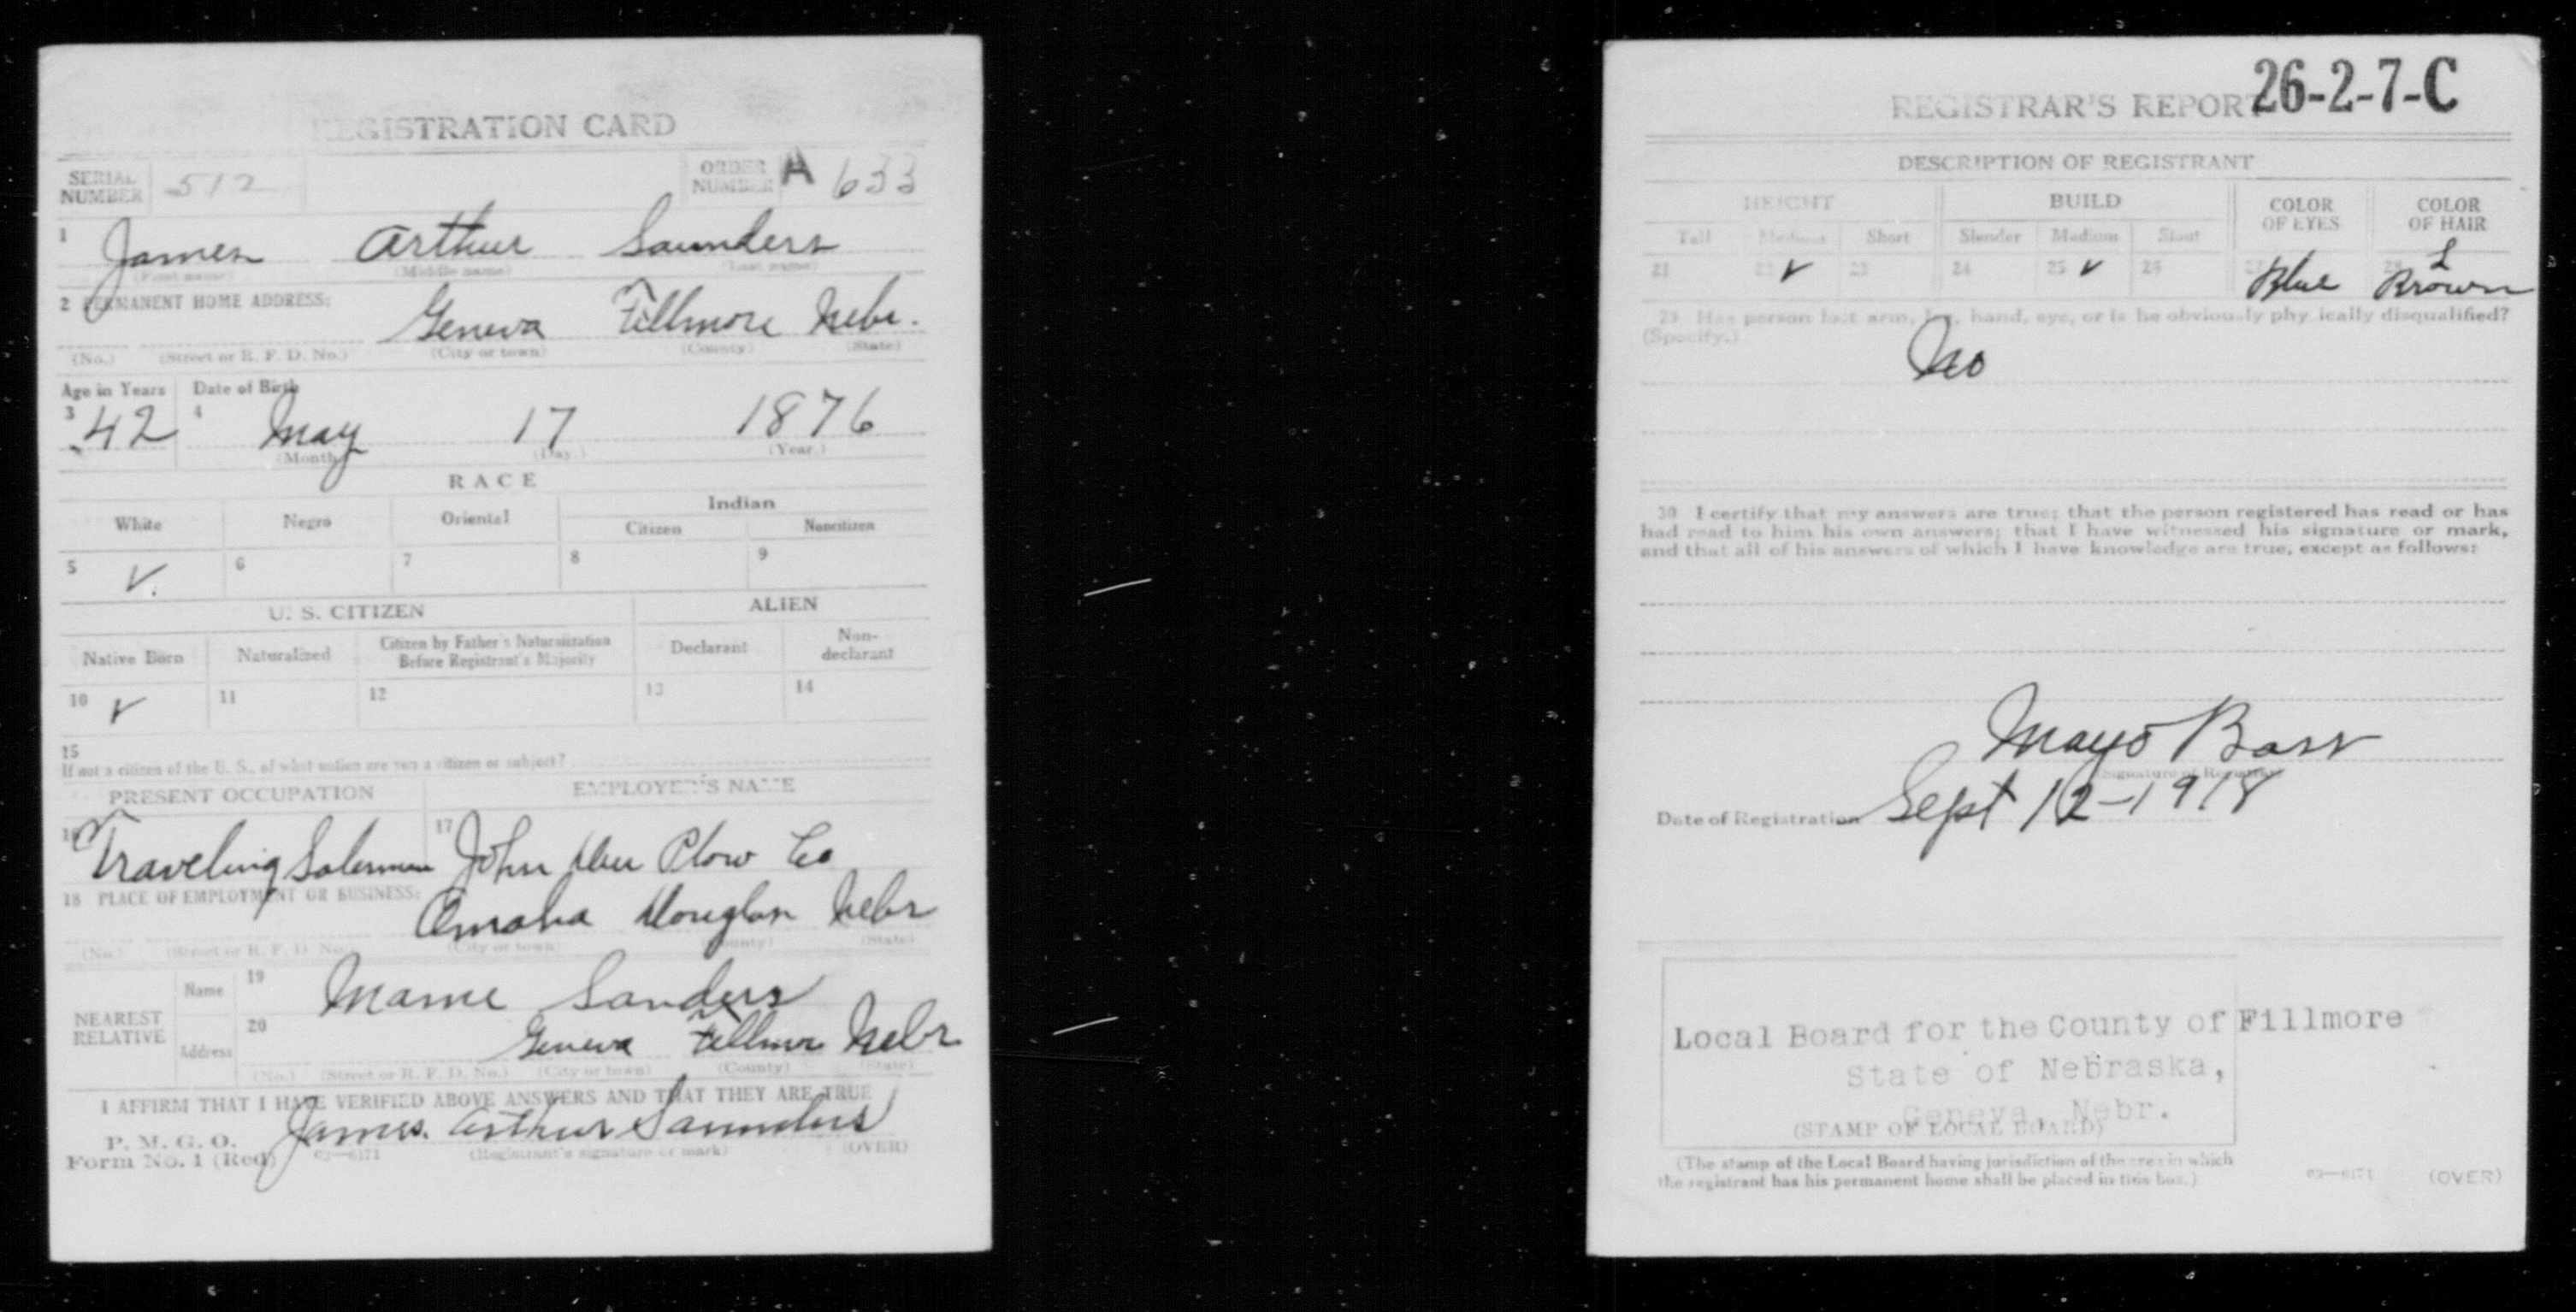 REGISTRATION CARD
SERIAL NUMBER 512 ORDER NUMBER A 633
1 James Arthur Saunders
(First name) (Middle name) (Last name)
2 PERMANENT HOME ADDRESS:
Geneva Fillmore Nebr.
(No.) (Street or R. F. D. No.) (City or town) (County) (State)
Age in Years Date of Birth
3 42 4 May 17 1876
(Month) (Day) (Year)
RACE
White Negro Oriental Indian
Citizen Noncitizen
5 V. 6 7 8 9
U. S. CITIZEN ALIEN
Native Born Naturalized Citizen by Father's Naturalization Before Registrant's Majority Declarant Non-declarant
10 V 11 12 13 14
15
If not a citizen of the U. S., of what nation are you a citizen or subject?
PRESENT OCCUPATION EMPLOYER'S NAME
16 Traveling Salesman 17 John Deere Plow Co
18 PLACE OF EMPLOYMENT OR BUSINESS:
Omaha Douglas Nebr
(No.) (Street or R. F. D. No.) (City or town) (County) (State)
NEAREST RELATIVE
Name 19 Mame Sanders
Address 20 Geneva Fillmore Nebr
(No.) (Street or R. F. D. No.) (City or town) (County) (State)
I AFFIRM THAT I HAVE VERIFIED ABOVE ANSWERS AND THAT THEY ARE TRUE
P. M. G. O.
Form No. 1 (Red) 03—6171 James. Arthur Saunders
(Registrant's signature or mark) (OVER)
REGISTRAR'S REPORT 26-2-7-C
DESCRIPTION OF REGISTRANT
HEIGHT BUILD COLOR OF EYES COLOR OF HAIR
Tall Medium Short Slender Medium Stout
21 22 V 23 24 25 V 26 27 Blue 28 L Brown
29 Has person lost arm, leg, hand, eye, or is he obviously physically disqualified?
(Specify.)
No
30 I certify that my answers are true; that the person registered has read or has
had read to him his own answers; that I have witnessed his signature or mark,
and that all of his answers of which I have knowledge are true, except as follows:
Mayo
(Signature of Registrar)
Date of Registration Sept 12-1918
Local Board for the County of Fillmore
State of Nebraska,
Geneva, Nebr.
(STAMP OF LOCAL BOARD)
(The stamp of the Local Board having jurisdiction of the area in which
the registrant has his permanent home shall be placed in this box.)
03—6171 (OVER)